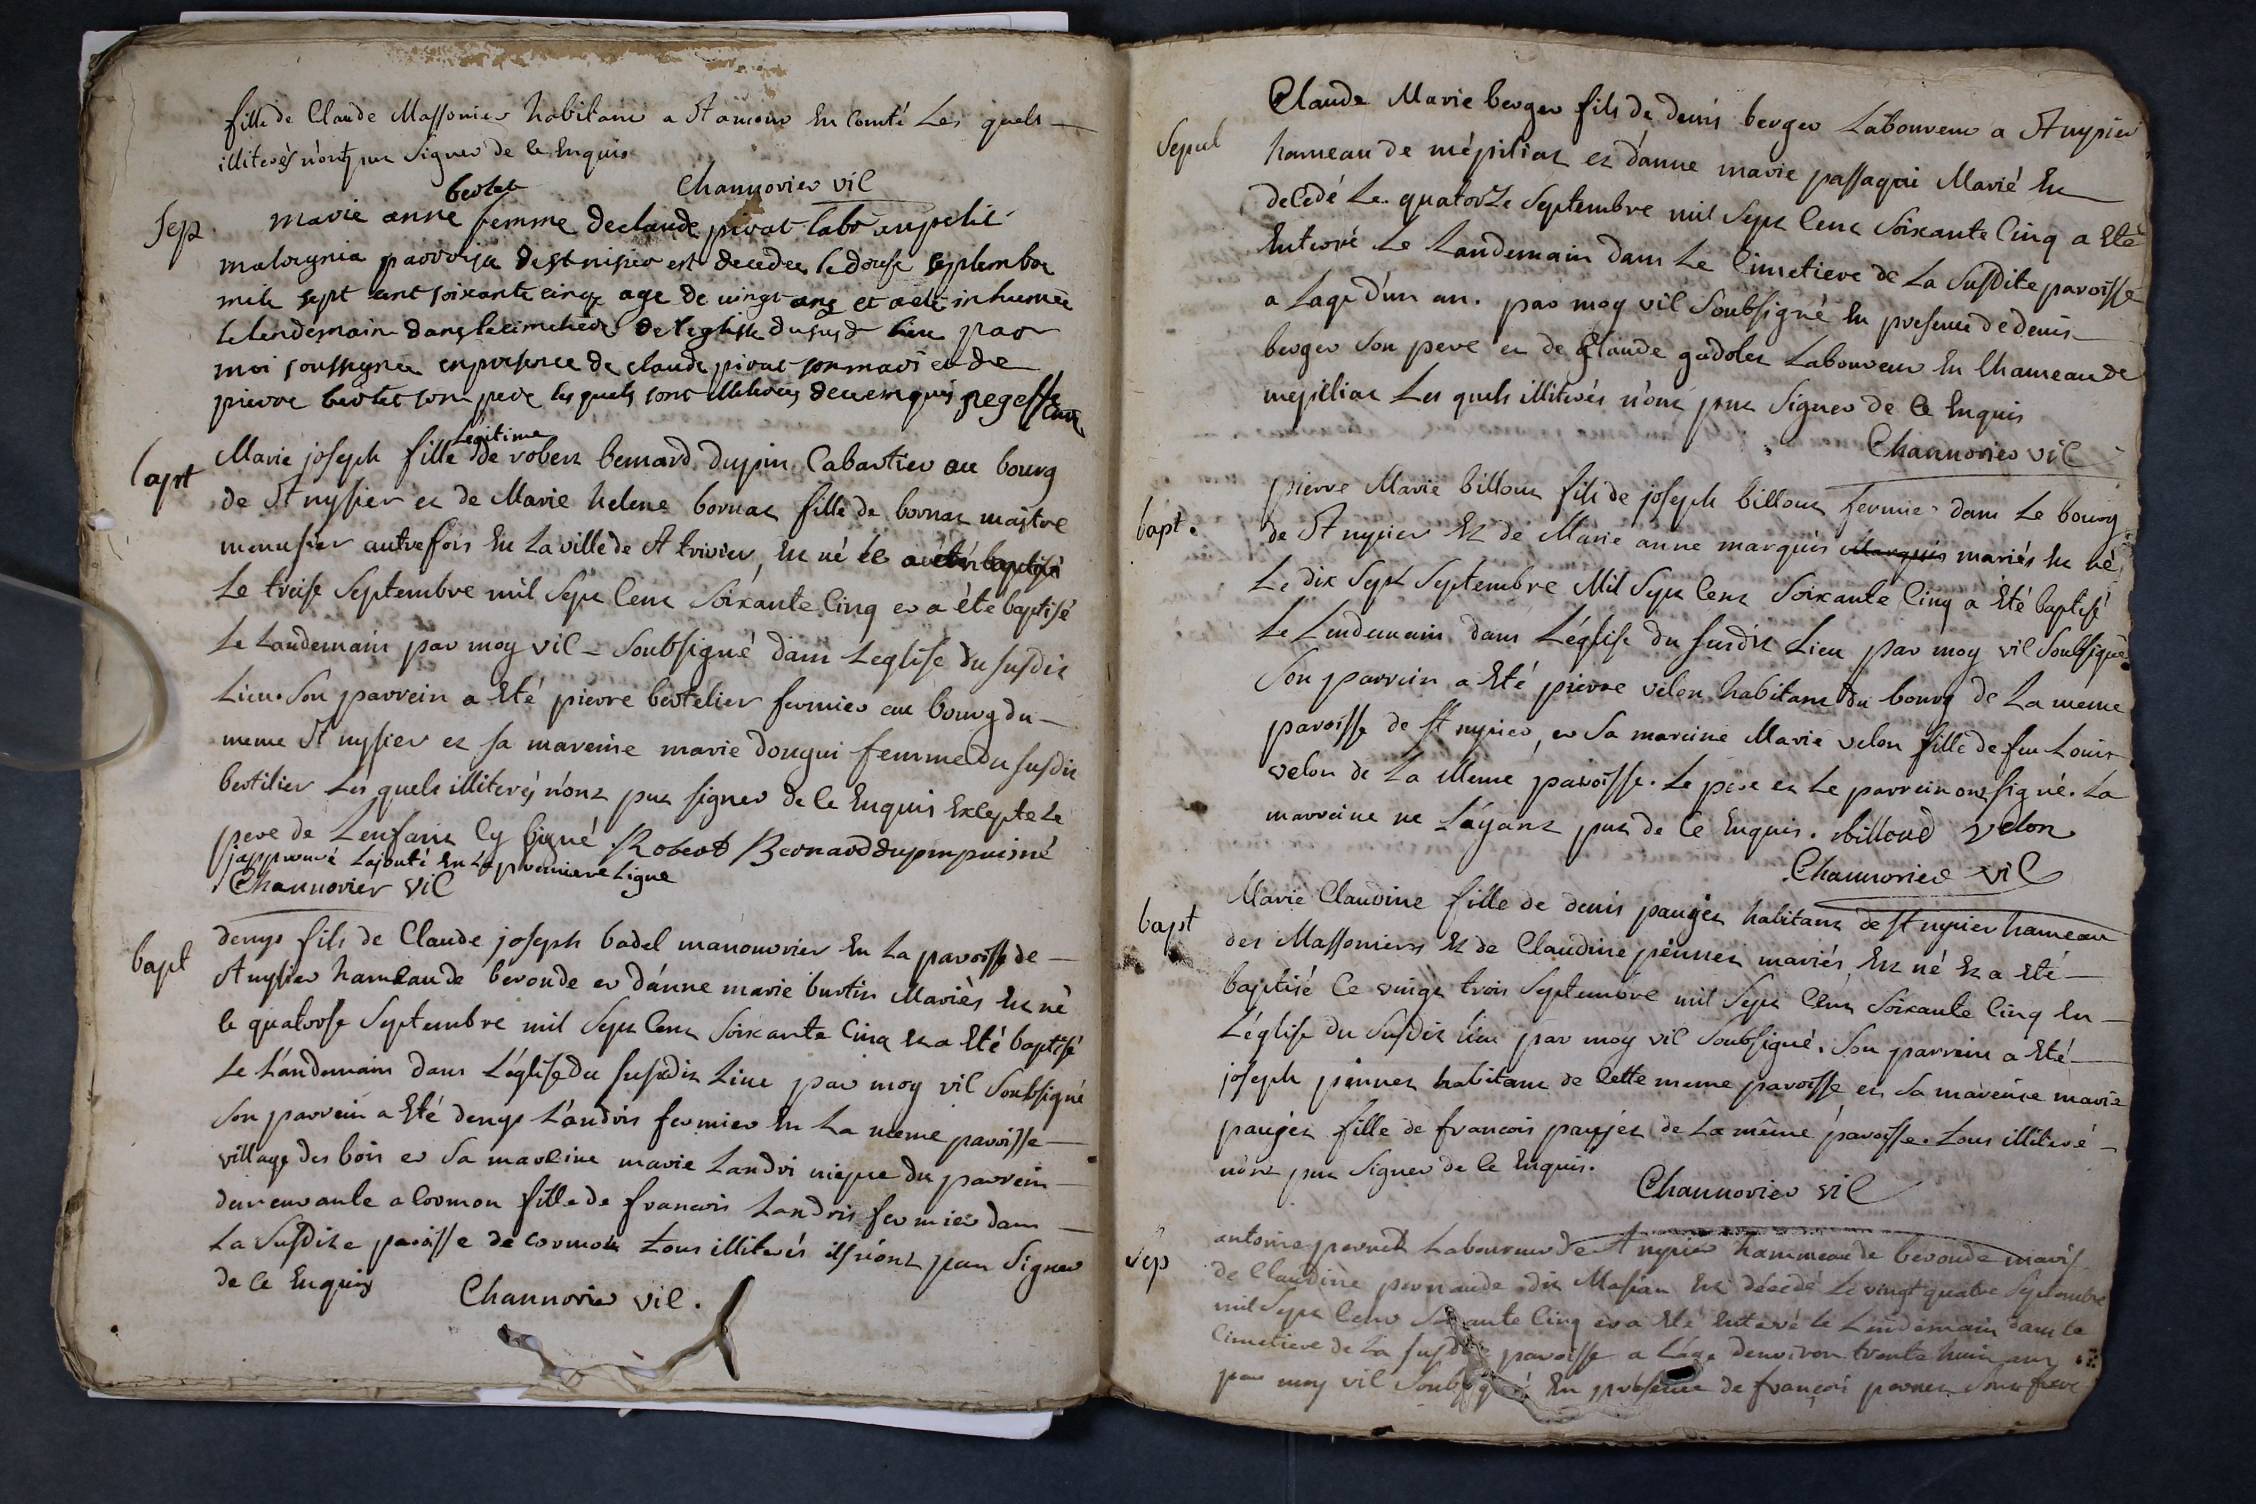 fille de Claude Massonier habitant a St amour En Comté Les quels
illiterès n'ont pu signer de ce Enquis
Channorier vic
Sep
bertet
marie anne femme de claude pivat labr au petit
malvignia parroisse de st nisier est decedee le douse septembre
mile sept cent soixante cinq age de vingt ans et a eté inhumée
le lendemain dans le cimetiere de l'eglise du susd lieu par
moi soussigné en presence de claude pivat son mari et de
pierre bertet son pere les quels sont illiteres de ce enquis
bapt
Legitime
Marie joseph fille de robert bernard dupin Cabartier au bourg
de St nysier et de Marie helene bornat fille de bornat maitre
menusier autrefois En La ville de St trivier, Est né et a été baptisé
Le treise Septembre mil Sept Cent Soixante Cinq et a été baptisé
Le Landemain par moy vic Soubsigné dans Leglise du susdit
Lieu. Son parrein a Eté pierre bertelier fermier au bourg du
meme St nysier et sa mareine marie dougui femme du susdit
bertilier Les quels illiterés n'ont put signer de Ce Enquis Excepté Le
pere de Lenfant Cy Signé Robert Bernard dupin puisné
japprouve Lajouté En La premiere Ligne
Channorier vic
bapt
denys fils de Claude joseph badel manouvrier En La paroisse de
St nysier hameau de beronde et d'anne marie burtin Mariés Est né
le quatorse Septembre mil Sept Cent Soixante Cinq Et a Eté baptisé
Le Landemain dans L'églisse du susdit Lieu par moy vic Soubsigné
Son parrein a Eté denys Landris fermier En La meme paroisse
village des bois et Sa mareine marie Landri niepce du parrein
demeurante a Cormou fille de francois Landris fermier dans
La Susdite paroisse de cormou tous illiterés ils n'ont pu Signer
de Ce Enquis
Channorier vic.
Sepul
Claude Marie berger fils de denis berger Laboureur a St nysier
hameau de mépiliat et d'anne marie passaqui Marié Est
decedé Le quatorze Septembre mil Sept Cent Soixante Cinq a Eté
Enterré Le Landemain dans Le Cimetiere de La Susdite paroisse
a Lage d'un an. par moy vic Soubsigné En presence de denis
berger Son pere et de Claude gadolet Laboureur En lhameau de
mépiliat Les quels illiterés n'ont put Signer de Ce Enquis
Channorier vic
bapt.
pierre Marie billout fils de joseph billout fermier dans Le bourg
de St nysier Et de Marie anne marquis Marquis mariés Est né
Le dix Sept Septembre Mil Sept Cent Soixante Cinq a Eté baptisé
Le Lendemain dans L'églisse du susdit Lieu par moy vic Soubsigné.
Son parrein a Eté pierre velon habitant du bourg de La meme
paroisse de St nysier, et Sa mareine Marie velon fille de feu Louis
velon de La Meme paroisse. Le pere et Le parrein ont signé. La
marraine ne L'ayant put de Ce Enquis. billoud velon
Channorier vic
bapt
Marie Claudine fille de denis pauget habitant de St nysier hameau
des Massoniers Et de Claudine pennet mariés, Est né Et a Eté
baptisé Ce vingt trois Septembre mil Sept Cent Soixante Cinq En
L'église du Susdit lieu par moy vic Soubsigné. Son parrein a Eté
joseph pennet habitant de Cette meme paroisse et Sa mareine marie
pauget fille de francois paujet de La même paroisse. tous illiteré
n'ont put Signer de Ce Enquis.
Channorier vic
Sep
antoine pernet Laboureur de St nysier hammeau de beronde maris
de Claudine pernaude dit Masian Est décédé Le vingt quatre Septembre
mil Sept Cent Soixante Cinq et a Eté Enterré le Lendemain dans le
Cimetiere de La susdite paroisse a L'age denviron trente huit ans
par moy vic Soubsigné En présence de françois pernet Son frere